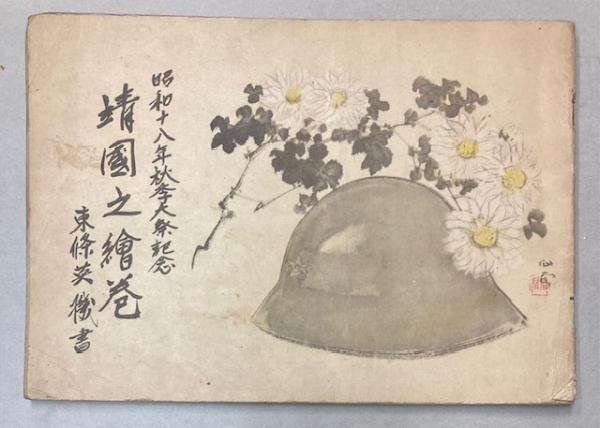 昭和十八年秋季大祭記念
靖國之繪巻
東條英機書